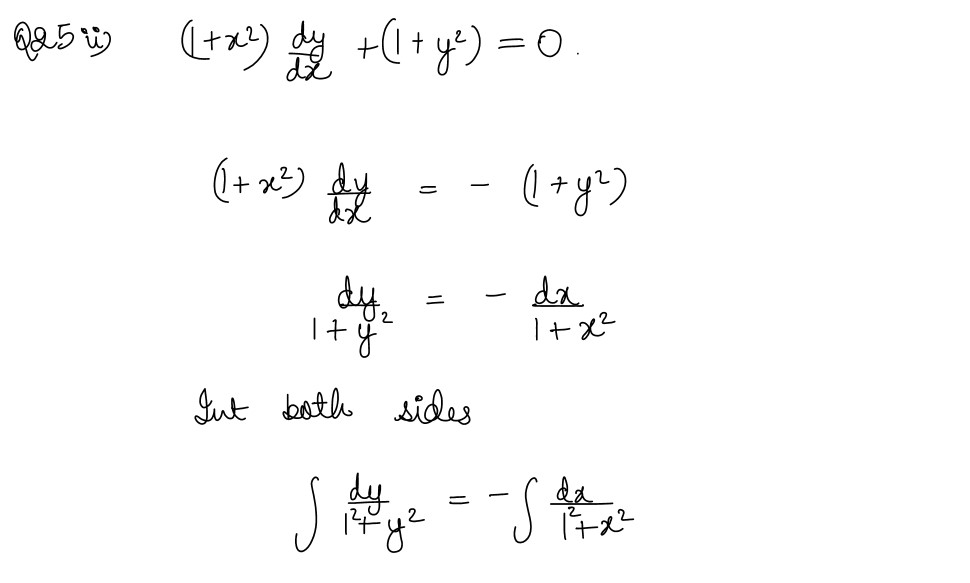 Q25 ii) (1+x²) dy/dx + (1+y²) = 0.
(1+x²) dy/dx = - (1+y²)
dy/1+y² = - dx/1+x²
Int both sides
∫ dy/1²+y² = -∫ dx/1²+x²